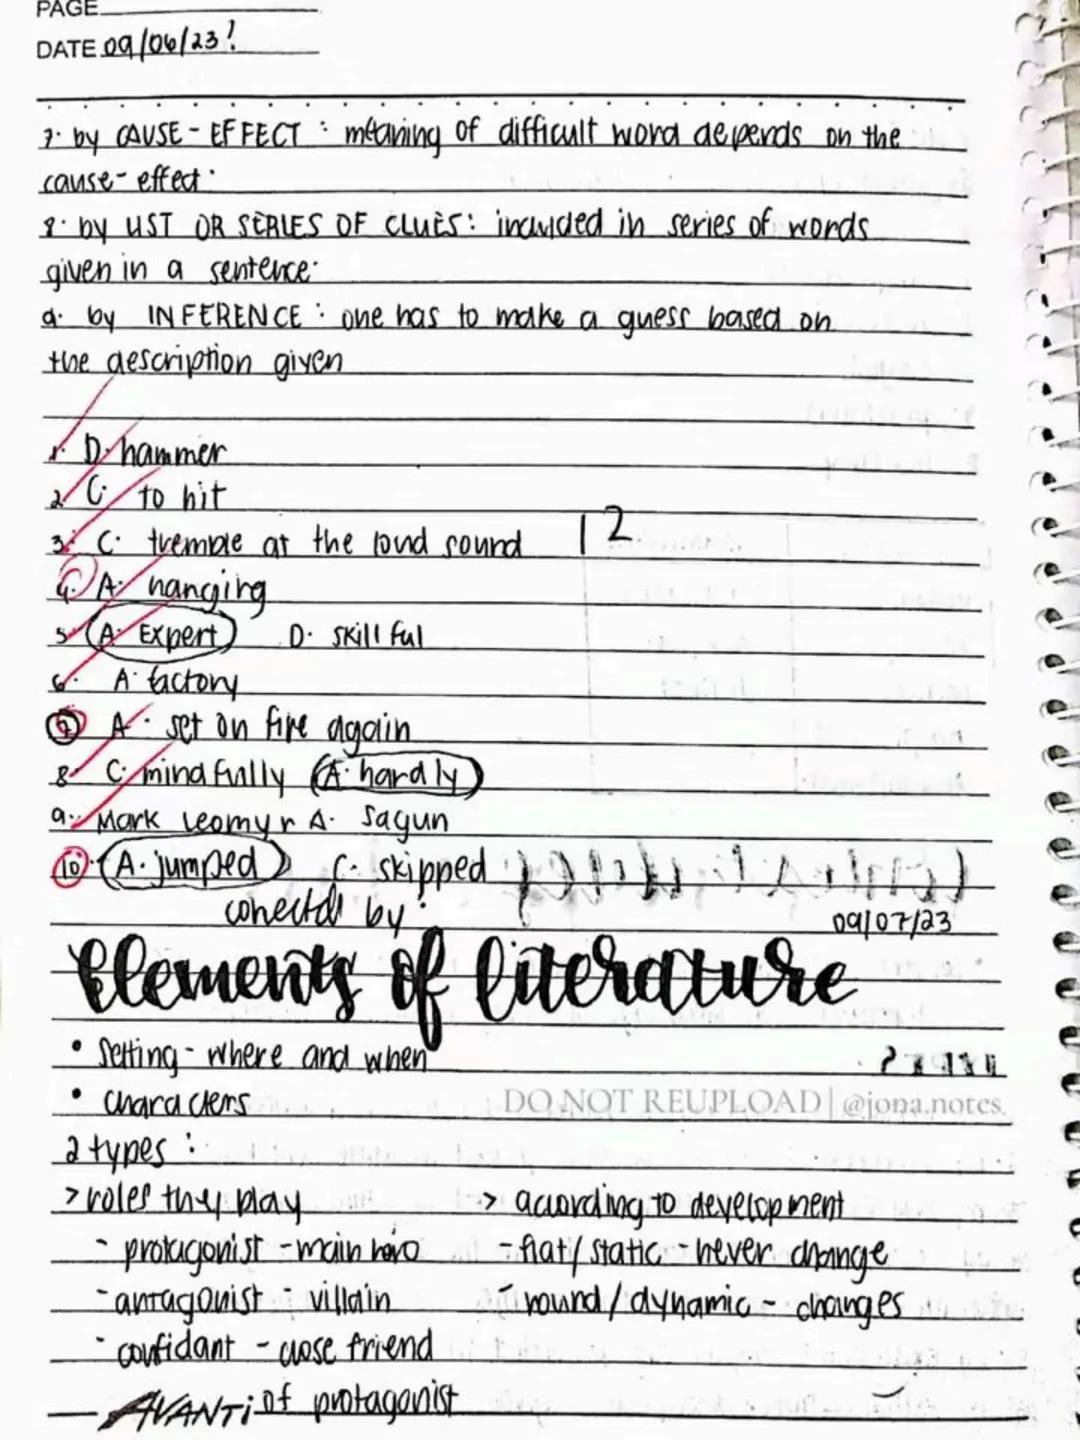 PAGE
DATE 09/06/23!
7. by CAUSE-EFFECT : meaning of difficult word depends on the
cause-effect.
8. by LIST OR SERIES OF CLUES: included in series of words
given in a sentence.
9. by INFERENCE : one has to make a guess based on
the description given
1. D. hammer
2. C. to hit
3. C. tremble at the loud sound 12
4. A. hanging
5. A. Expert D. skillful
6. A. factory
7 A. set on fire again
8 C. mindfully A. hardly
9. Mark Leomyr A. Sagun
10. A. jumped C. skipped
by :
09/07/23
Elements of literature
• Setting - where and when
• characters
DO NOT REUPLOAD | @jona.notes
2 types :
> roles they play > according to development
- protagonist - main hero - flat/static - never change
- antagonist - villain - round/dynamic - changes
- confidant - close friend
AVANTi of protagonist